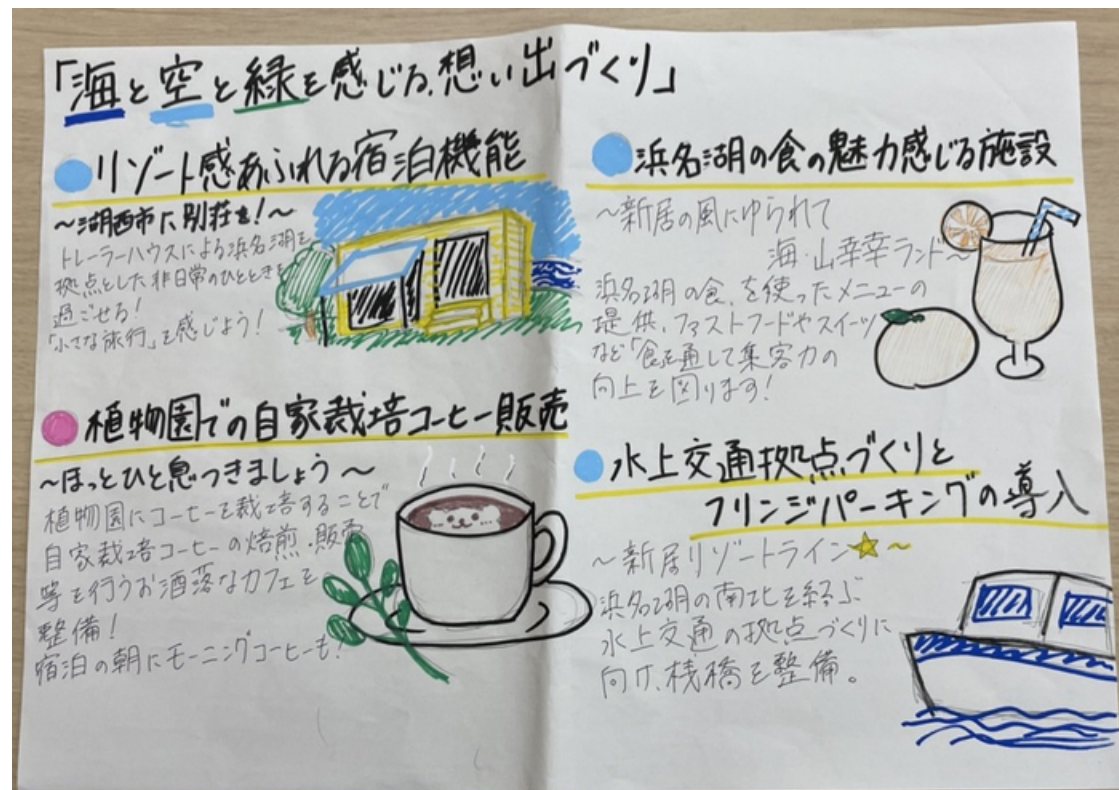 「海と空と緑を感じる、想い出づくり」
リゾート感あふれる宿泊機能
～湖西市に別荘を!～
トレーラーハウスによる浜名湖を
拠点とした非日常のひとときを
過ごせる!
「小さな旅行」を感じよう!
植物園での自家栽培コーヒー販売
～ほっとひと息つきましょう～
植物園にコーヒーを栽培することで
自家栽培コーヒーの焙煎・販売
等を行うお洒落なカフェを
整備!
宿泊の朝にモーニングコーヒーも!
浜名湖の食の魅力感じる施設
～新居の風にゆられて
海・山幸幸ランド～
浜名湖の食、を使ったメニューの
提供、ファストフードやスイーツ
など「食を通して集客力の
向上を図ります!
水上交通拠点づくりと
フリンジパーキングの導入
～新居リゾートライン☆～
浜名湖の南北を結ぶ
水上交通の拠点づくりに
向け、桟橋を整備。